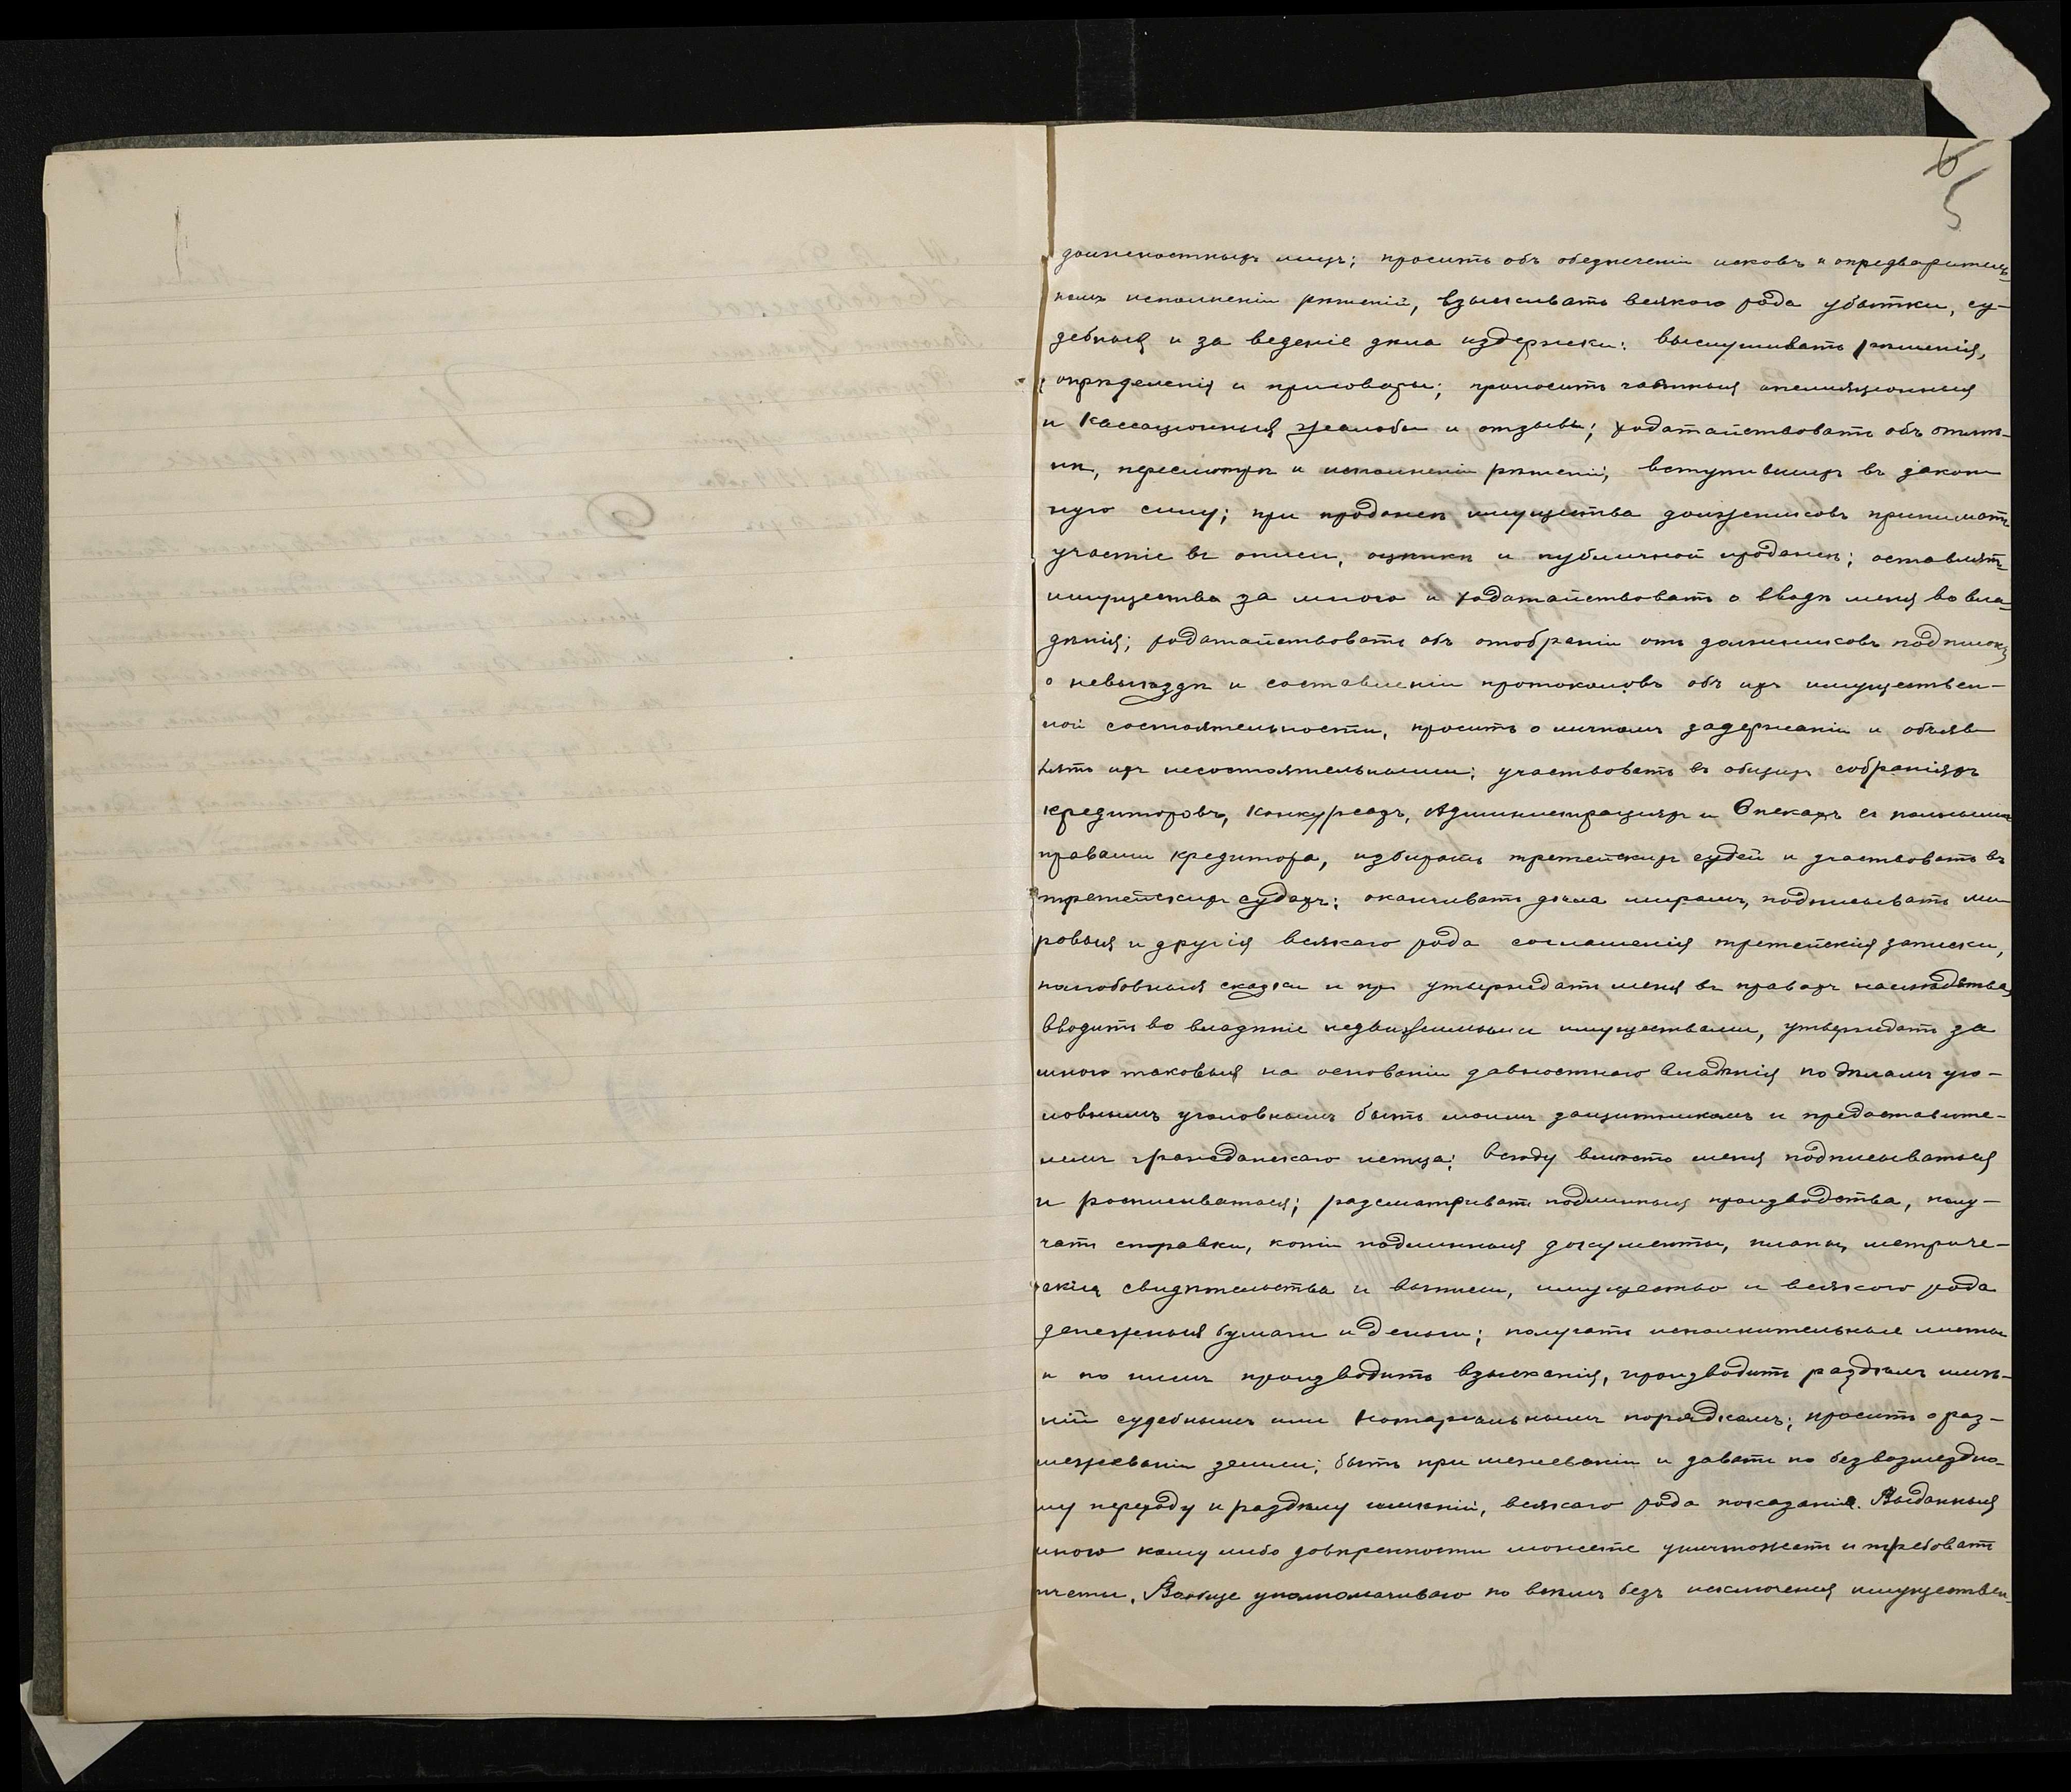 6
5
должностныхъ лицъ; просить объ обезпеченіи исковъ и опредварительъ
номъ исполненіи рѣшеній, взыскивать всякого рода убытки, су-
дебныя и за веденіе дѣла издержки: выслушивать рѣшенія,
опрѣделенія и приговоры; приносить частныя апелляціонныя
и Кассаціонныя жалобы и отзывы; ходатайствовать объ отмѣ-
нѣ, пересмотрѣ и исполненіи рѣшеній, вступившихъ въ закон
ную силу; при продажѣ имущества должниковъ принимать
участіе въ описи, оцѣнкѣ и публичной продажѣ; оставлять
имущества за мною и ходатайствовать о вводѣ меня во вла-
дѣнія; ходатайствовать объ отобраніи отъ должниковъ подписокъ
о невыѣздѣ и составленіи протоколовъ объ ихъ имуществен-
ной состоятельности, просить о личномъ задержаніи и объяв
лять ихъ несостоятельными; участвовать въ общихъ собраніяхъ
кредиторовъ, Конкурсахъ, Администраціяхъ и Опекахъ съ полными
правами кредитора, избирать третейскихъ судей и участвовать въ
третейскихъ судахъ; оканчивать дѣла миромъ, подписывать ми
ровыя и другія всякаго рода соглашенія третейскія записки,
полюбовныя сказки и пр утверждать меня въ правахъ наслѣдства,
вводить во владѣніе недвижимыми имуществами, утверждать за
мною таковыя на основаніи давностнаго владѣнія по дѣламъ уго-
ловнымъ уголовнымъ быть моимъ защитникомъ и предоставите-
лемъ гражданскаго истца; всюду вмѣсто меня подписываться
и росписываться; разсматривать подлинныя производства, полу-
чать справки, копіи подлинныя документы, планы, метриче-
скія свидѣтельства и выписи, имущество и всякого рода
денежныя бумаги и деньги; получать исполнительные листы
и по нимъ производить взысканія, производить раздѣлъ имѣ-
ній судебнымъ или Нотаріальнымъ порядкомъ; просить о раз-
межеваніи земли; быть при межеваніи и давать по безвозмездно-
му переходу и раздѣлу имѣній, всякаго рода показанія. Выданныя
мною кому либо довѣренности можете уничтожать и требовать
отчеты. Вообще уполномачиваю по всѣмъ безъ исключенія имуществен-